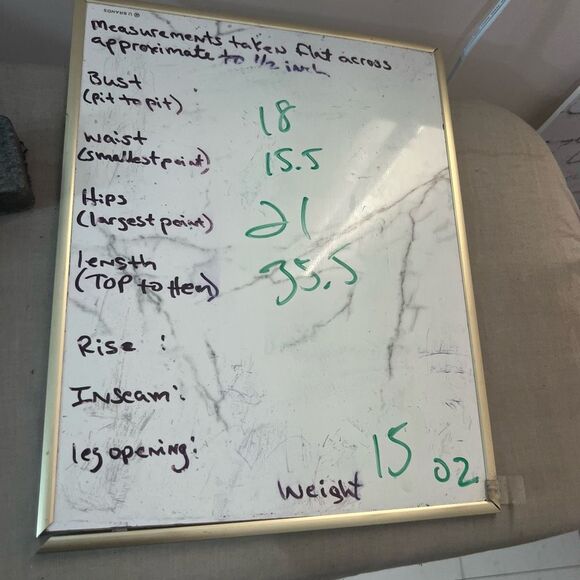 U BRANDS
Measurements taken flat across
approximate to 1/2 inch
Bust
(pit to pit) 18
Waist
(smallest point) 15.5
Hips
(largest point) 21
length
(TOP to Hem) 35.5
Rise :
Inseam:
leg opening:
15 oz
Weight